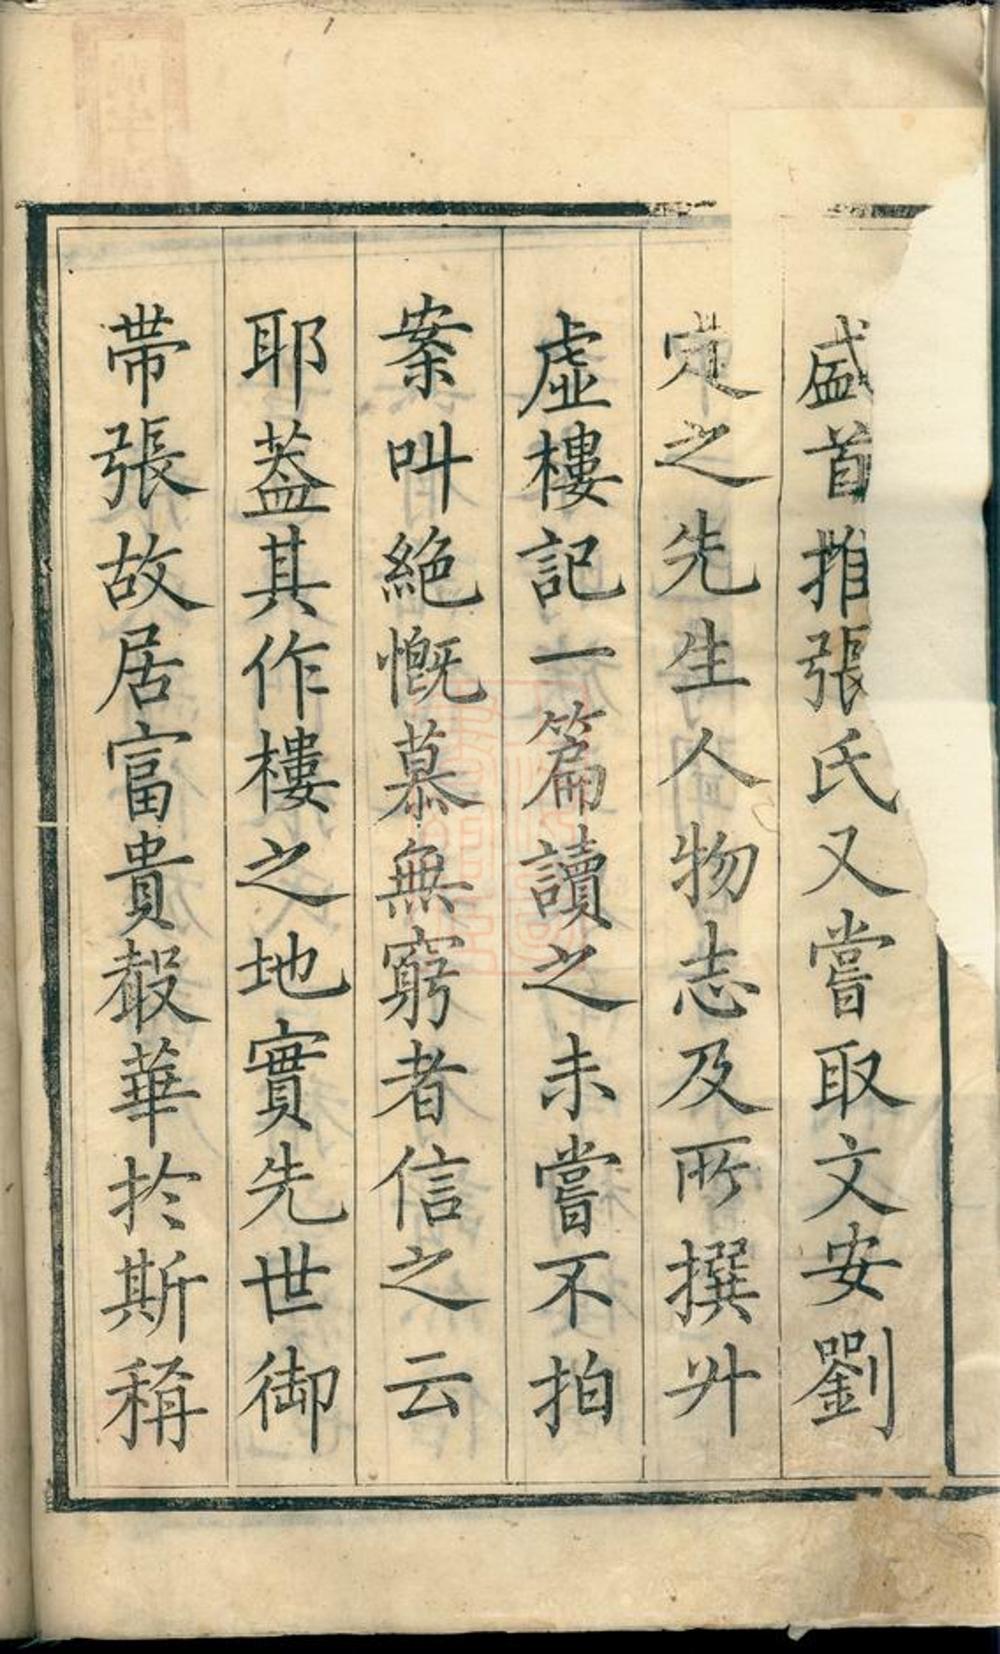 盛首推張氏又嘗取文安劉
定之先生人物志及所撰艸
虛樓記一篇讀之未嘗不拍
案叫絕慨慕無窮者信之云
耶葢其作樓之地實先世御
帯張故居富貴縠華於斯稱